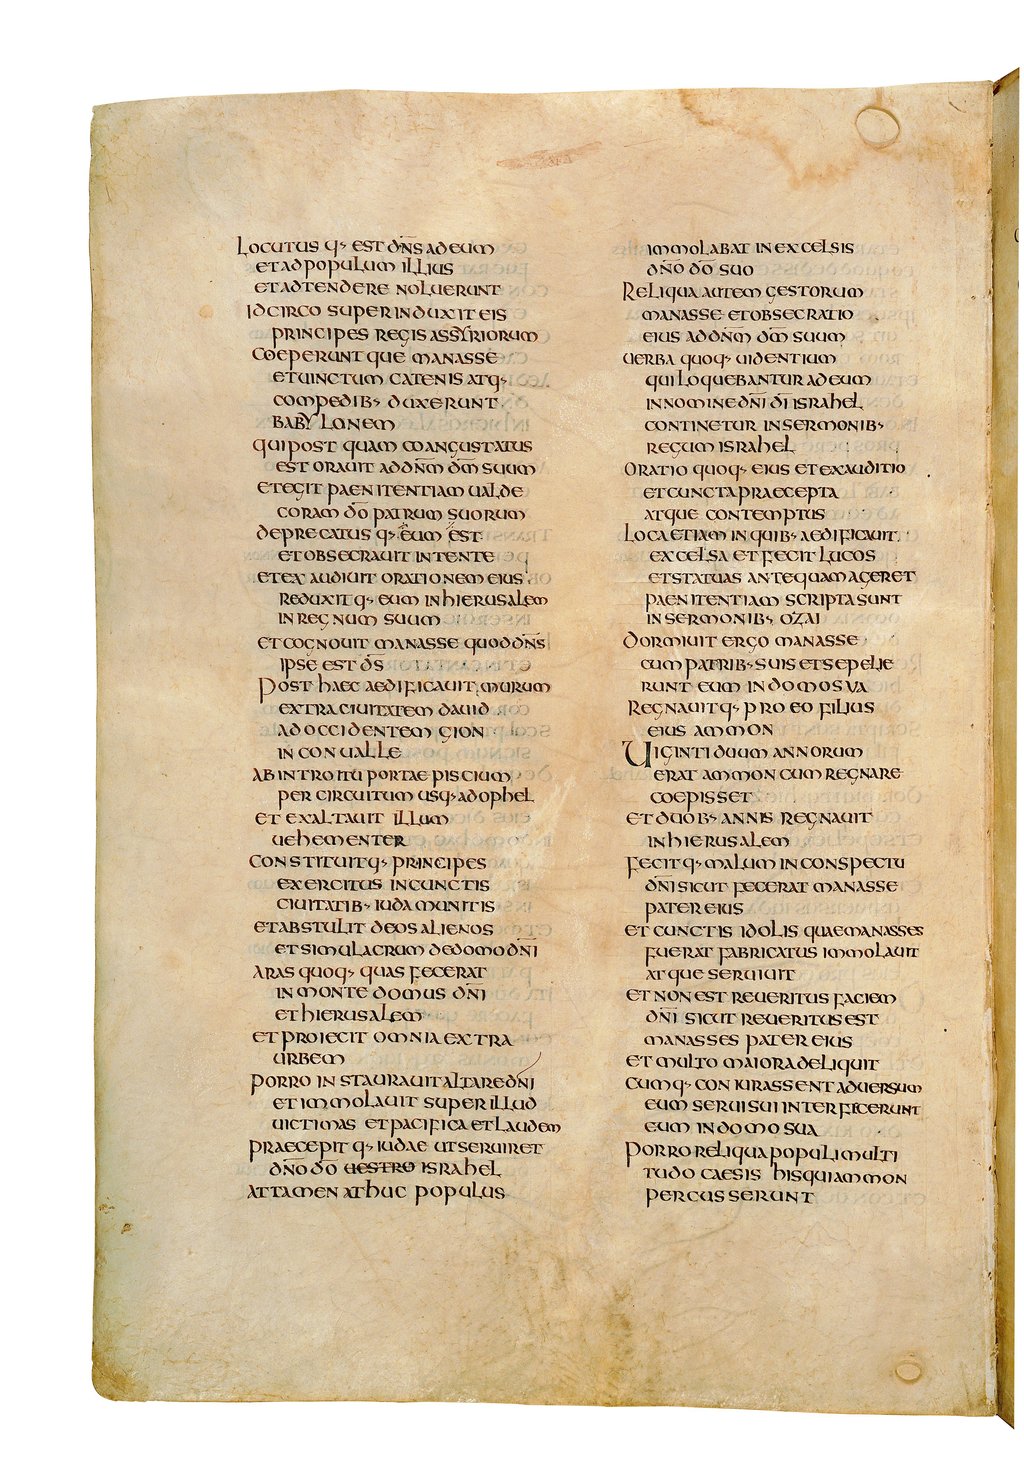 Locutus q; est dn̄s ad eum
et ad populum illius
et adtendere noluerunt
Idcirco superinduxit eis
principes regis assyriorum
coeperuntque manasse
et uinctum catenis atq;
compedib; duxerunt
babylonem
qui post quam coangustatus
est orauit ad dn̄m dm̄ suum
et egit paenitentiam ualde
coram dō patrum suorum
deprecatus q; eum est
et obsecrauit intente
et exaudiuit orationem eius
reduxit q; eum in hierusalem
in regnum suum
et cognouit manasse quod dn̄s
ipse est ds̄
Post haec aedificauit murum
extra ciuitatem dauid
ad occidentem gion
in conualle
ab introitu portae piscium
per circuitum usq; ad ophel
et exaltauit illum
uehementer
constituit q; principes
exercitus in cunctis
ciuitatib; iuda munitis
et abstulit deos alienos
et simulacrum de domo dn̄i
aras quoq; quas fecerat
in monte domus dn̄i
et hierusalem
et proiecit omnia extra
urbem
porro instaurauit altare dn̄i
et immolauit super illud
uictimas et pacifica et laudem
praecepit q; iudae ut seruiret
dn̄o dō uestro israhel
attamen adhuc populus
immolabat in excelsis
dn̄o dō suo
Reliqua autem gestorum
manasse et obsecratio
eius ad dn̄m dm̄ suum
uerba quoq; uidentium
qui loquebantur ad eum
in nomine dn̄i dī israhel
continetur in sermonib;
regum israhel
oratio quoq; eius et exauditio
et cuncta praecepta
atque contemptus
Loca etiam in quib; aedificauit
excelsa et fecit lucos
et statuas antequam ageret
paenitentiam scripta sunt
in sermonib; ozai
dormiuit ergo manasse
cum patrib; suis et sepelie
runt eum in domo sua
Regnauit q; pro eo filius
eius ammon
Uiginti duum annorum
erat ammon cum regnare
coepisset
et duob; annis regnauit
in hierusalem
fecit q; malum in conspectu
dn̄i sicut fecerat manasse
pater eius
et cunctis idolis quae manasses
fuerat fabricatus immolauit
atque seruiuit
et non est reueritus faciem
dn̄i sicut reueritus est
manasses pater eius
et multo maiora deliquit
cum q; coniurassent aduersum
eum serui sui interfecerunt
eum in domo sua
porro reliqua populi multi
tudo caesis his qui ammon
percusserunt